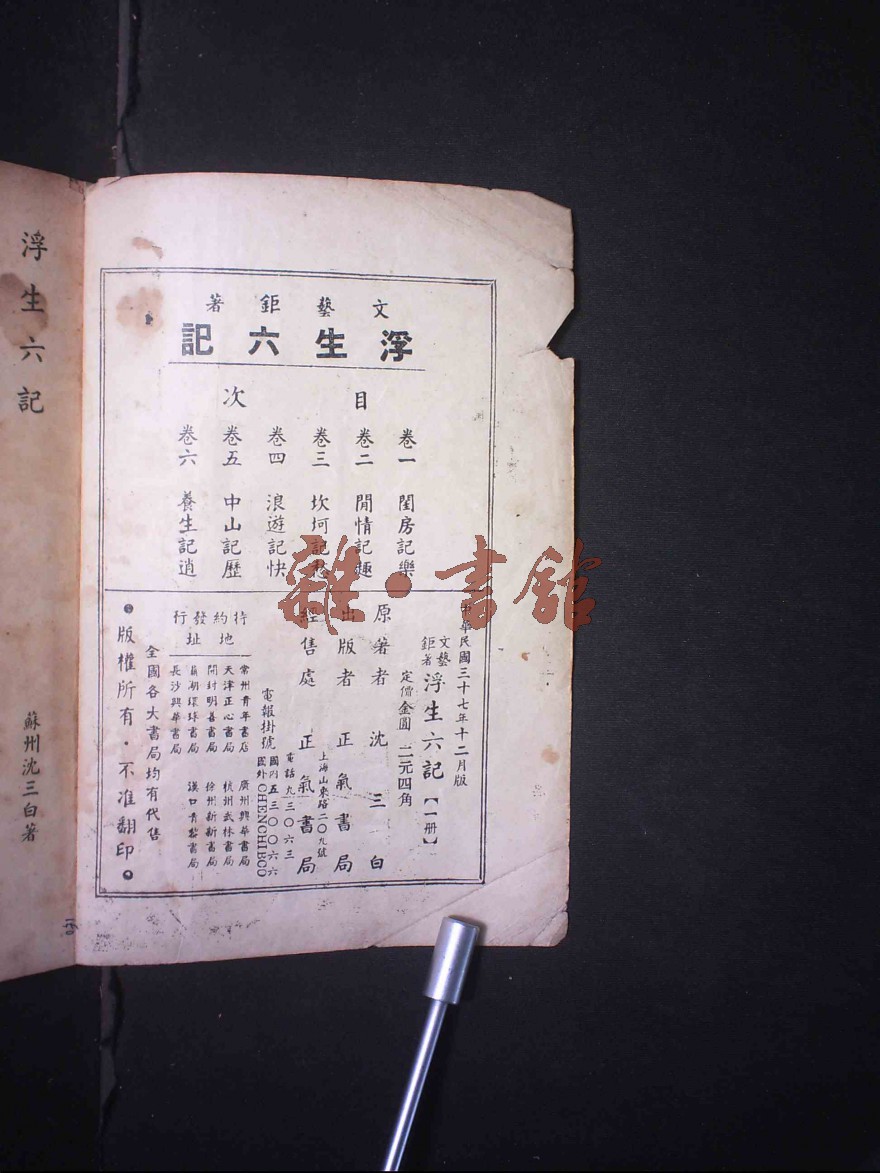 文藝鉅著
浮生六記
目次
卷一 閨房記樂
卷二 閒情記趣
卷三 坎坷記愁
卷四 浪遊記快
卷五 中山記歷
卷六 養生記逍
中華民國三十七年十二月版
文藝鉅著 浮生六記【一册】
定價金圓 二元四角
原著者 沈三白
出版者 正氣書局
上海山東路二〇九號
電話九三〇六三
經售處 正氣書局
電報掛號
國內五三〇〇六六
國外CHENCHIBCO
特約發行
地址
常州青年書店 廣州興華書局
天津正心書局 杭州武林書局
開封明善書局 徐州新新書局
蕪湖環球書局 漢口書局
長沙興華書局
全國各大書局均有代售
版權所有·不准翻印
浮生六記
蘇州沈三白著
雜·書館